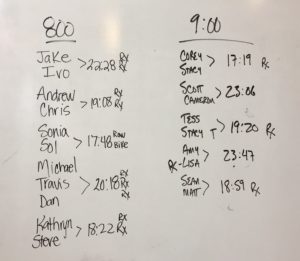 800
Jake
Ivo > 22:28 Rx Rx
Andrew
Chris > 19:08 Rx Rx
Sonia
Sol > 17:48 Row Bike
Michael
Travis > 20:18 Rx Rx Rx
Dan
Kathryn
Steve > 18:22 Rx Rx
9:00
Corey
Stacy > 17:19 Rx
Scott
Cameron > 23:06
Tess
Stacy T > 19:20 Rx
Amy
Rx-Lisa > 23:47
Sean
Matt > 18:59 Rx